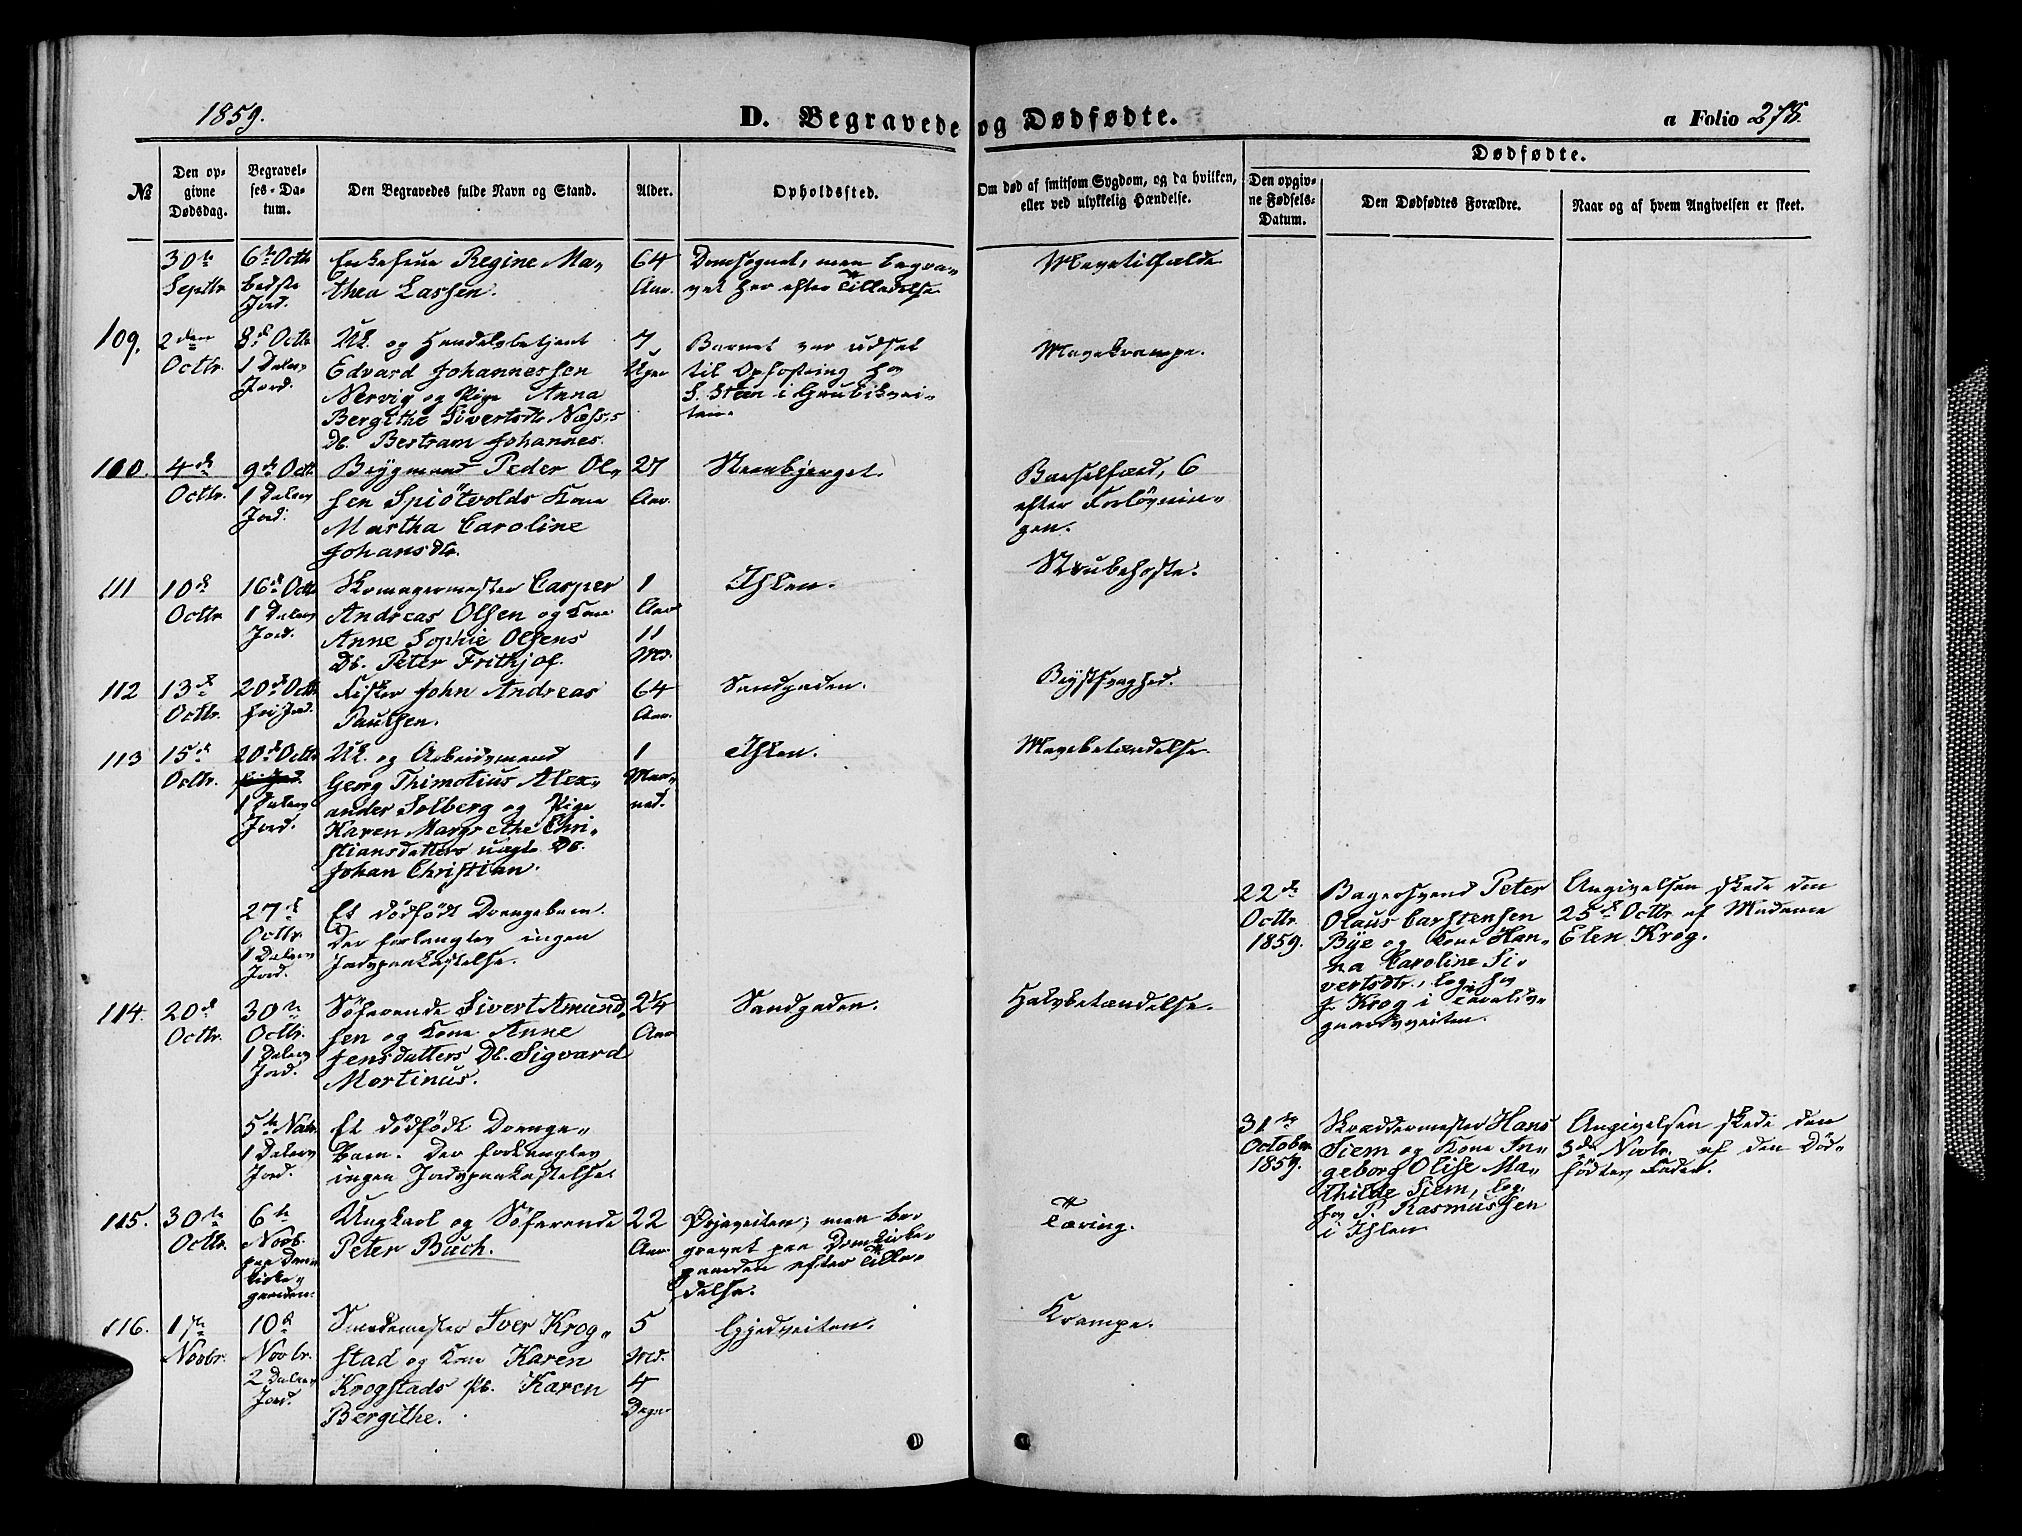 1859.
D. Begravede og Dødfødte.
a Folio 278.
№
Den op-
givne
Dødsdag.
Begravel-
ses-Da-
tum.
Den Begravedes fulde Navn og Stand.
Alder.
Opholdssted.
Om død af smitsom Sygdom, og da hvilken,
eller ved ulykkelig Hændelse.
Dødfødte.
Den opgiv-
ne Fødsels-
Datum.
Den Dødfødtes Forældre.
Naar og af hvem Angivelsen er skeet.
30te
Septbr.
6te Octb
bedste
Jord.
Enkefrue Regine Ma-
thea Lassen.
64
Aar.
Domsognet, men begra-
vet her efter Tilladelse
Mavetilfælde
109.
2den
Octbr.
8de Octb
1 Dalers
Jord.
Uk. og Handelsbetjent
Edvard Johannessen
Nervig og Pige Anna
Bergithe Sivertsdtr Næss's
Db. Bertram Johannes.
7
Uger
Barnet var udsat
til Opfostring hos
S. Steen i Grubbkvei-
ten.
Mavekrampe.
110.
4de
Octbr.
9de Octb.
1 Dalers
Jord.
Brygmand Peder Ol-
sen Spjötvolds Kone
Martha Caroline
Johansdtr.
27
Aar.
Steenbjerget.
Barselfærd, 6
efter Forløsnin-
gen.
111
10de
Octbr
16de Octb
1 Dalers
Jord.
Skomagermester Casper
Andreas Olsen og Kone
Anne Sophie Olsens
Db. Peter Frithjof.
1
Aar
11
Md.
Ihlen.
Strubehoste.
112
13de
Octbr.
20de Octb
fri Jord.
Fisker John Andreas
Paulsen.
64
Aar.
Sandgaden.
Brystsvaghed.
113
15de
Octbr.
20de Octb
fri Jord
1 Dalers
Jord.
Uk. og Arbeidsmand
Georg Thimotius Alex-
ander Solberg og Pige
Karen Margrethe Chri-
stiansdatters uægte Db.
Johan Christian.
1
Maa-
ned.
Ihlen.
Mavebetændelse
27de
Octbr.
1 Dalers
Jord.
Et dödfödt Drengebarn.
Der forlangtes ingen
Jordspaakastelse.
22de
Octbr.
1859.
Bagersvend Peter
Olaus Carstensen
Bye og Kone Han-
na Caroline Si-
vertsdtr., log. hos
J. Krog i Taralds-
gaardsveiten.
Angivelsen skede den
25de Octbr. af Madame
Elen Krog.
114.
20de
Octbr.
30te
Octbr.
1 Dalers
Jord.
Söfarende Sivert Amund-
sen og Kone Anne
Jensdatters Db. Sigvard
Mortinus.
2¼
Aar
Sandgaden.
Halsbetændelse.
5te Novb.
1 Dalers
Jord.
Et dödfödt Drenge-
barn. Der forlangtes
ingen Jordspaakastelse.
31te
October
1859.
Skræddermester Hans
Siem og Kone In-
geborg Olise Ma-
thilde Siem, log.
hos P. Rasmussen
i Ihlen
Angivelsen skede den
3de Novbr. af den Död-
födtes Fader.
115.
30te
Octbr.
6te
Novb.
paa Dom-
kirke-
gaarden.
Ungkarl og Söfarende
Peter Buch.
22
Aar.
Ørjaveiten; men be-
gravet paa Domkirke-
gaarden efter Tilla-
delse.
Tæring.
116.
1ste
Novbr.
10de
Novbr.
2 Dalers
Jord.
Smedemester Iver Krog-
stad og Kone Karen
Krogstads Pb. Karen
Bergithe.
5
Md.
4
Dage
Gjedveiten.
Krampe.